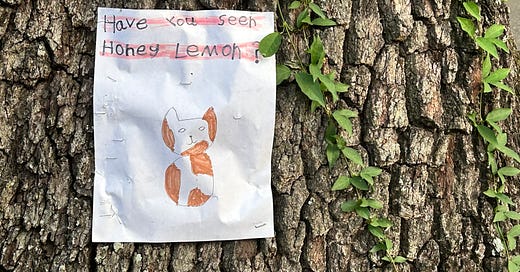 Have you seen
Honey Lemon?